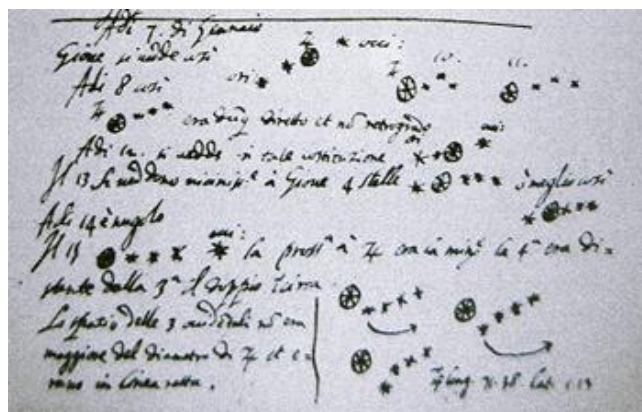 Adi 7. di Gennaio
Gione si vedde così
Adi 8 così
era dunq diretto et nō retrogrado
Adi 12. si vedde in tale costituzione
Il 13 si veddono minimiss.e à Gione 4 stelle è meglio così
Adi 14 è nugolo
Il 15 la pross.a à ♃ era la min.e la 4.a era di=
stante dalla 3.a il doppio
Lo spazio delle 3 occidentali nō era
maggiore del diametro di ♃ et e=
rano in linea retta.
♃ long. 71.38. lat. 1.13